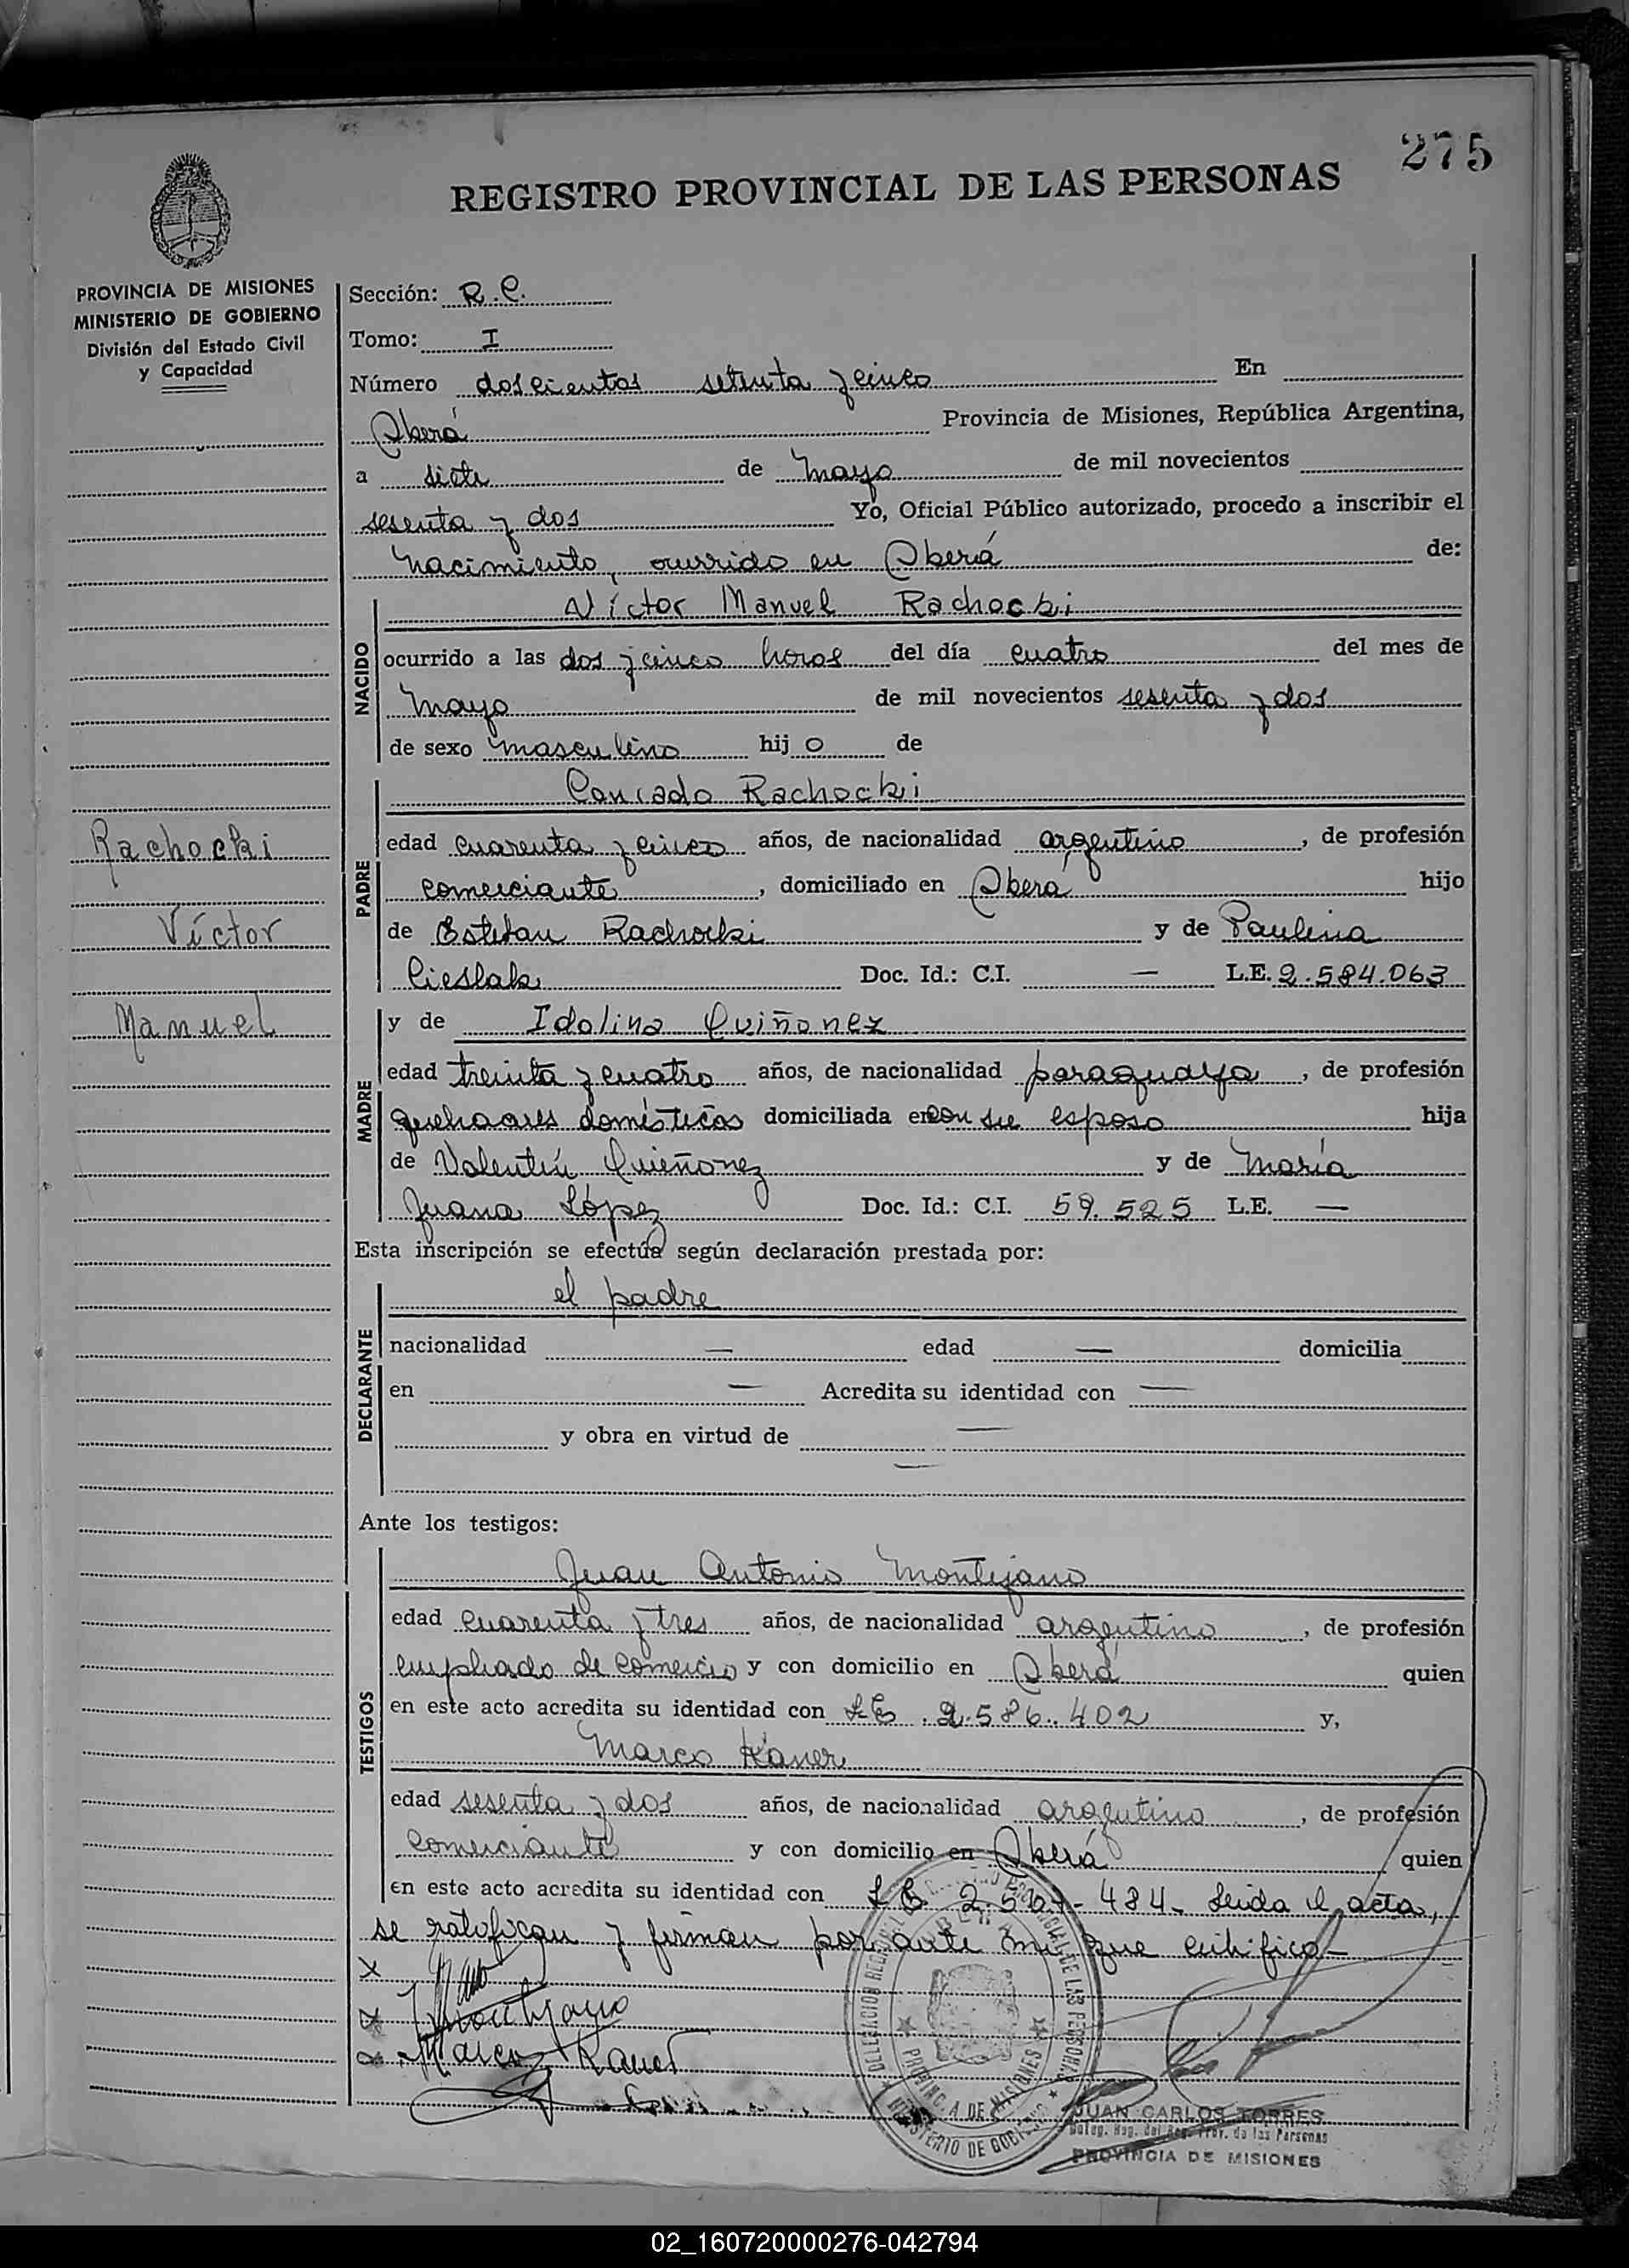 275
REGISTRO PROVINCIAL DE LAS PERSONAS
PROVINCIA DE MISIONES
MINISTERIO DE GOBIERNO
División del Estado Civil
y Capacidad
Sección: R.C.
Tomo: I
Número doscientos setenta y cinco En
Oberá Provincia de Misiones, República Argentina,
a siete de Mayo de mil novecientos
sesenta y dos Yo, Oficial Público autorizado, procedo a inscribir el
nacimiento, ocurrido en Oberá de:
NACIDO
Víctor Manuel Rachocki
ocurrido a las dos y cinco horas del día cuatro del mes de
Mayo de mil novecientos sesenta y dos
de sexo masculino hij o de
PADRE
Conrado Rachocki
edad cuarenta y cinco años, de nacionalidad argentino, de profesión
comerciante, domiciliado en Oberá hijo
de Esteban Rachocki y de Paulina
Cieslak Doc. Id.: C.I. — L.E. 2.584.063
Rachocki
Víctor
Manuel
MADRE
y de Idolina Quiñonez
edad treinta y cuatro años, de nacionalidad paraguaya, de profesión
quehaceres domésticos domiciliada en con su esposo hija
de Valentín Quiñonez y de María
Juana López Doc. Id.: C.I. 59.525 L.E. —
Esta inscripción se efectúa según declaración prestada por:
DECLARANTE
el padre
nacionalidad — edad — domicilia
en — Acredita su identidad con —
y obra en virtud de —
—
Ante los testigos:
TESTIGOS
Juan Antonio Montejano
edad cuarenta y tres años, de nacionalidad argentino, de profesión
empleado de comercio y con domicilio en Oberá quien
en este acto acredita su identidad con LE. 2.586.402 y,
Marco Kaner
edad sesenta y dos años, de nacionalidad argentino, de profesión
comerciante y con domicilio en Oberá quien
en este acto acredita su identidad con LE 484- Leida el acta,
se ratifican y firman por ante mi que certifico-
Montejano
Marcos Kaner
DELEGACION REGISTRO PROVINCIAL DE LAS PERSONAS
OBERA
PROVINCIA DE MISIONES
MINISTERIO DE GOBIERNO
JUAN CARLOS TORRES
Deleg. Reg. del Reg. Prov. de las Personas
PROVINCIA DE MISIONES
02_160720000276-042794